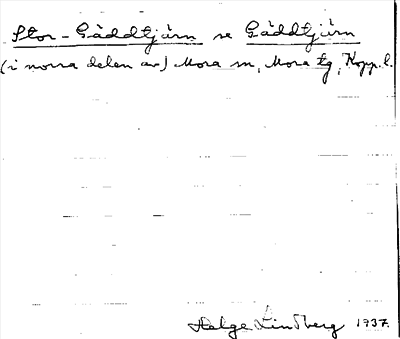 Stor-Gäddtjärn se Gäddtjärn
(i norra delen av) Mora sn, Mora tg, Kopp. l.
Helge Lindberg 1937.